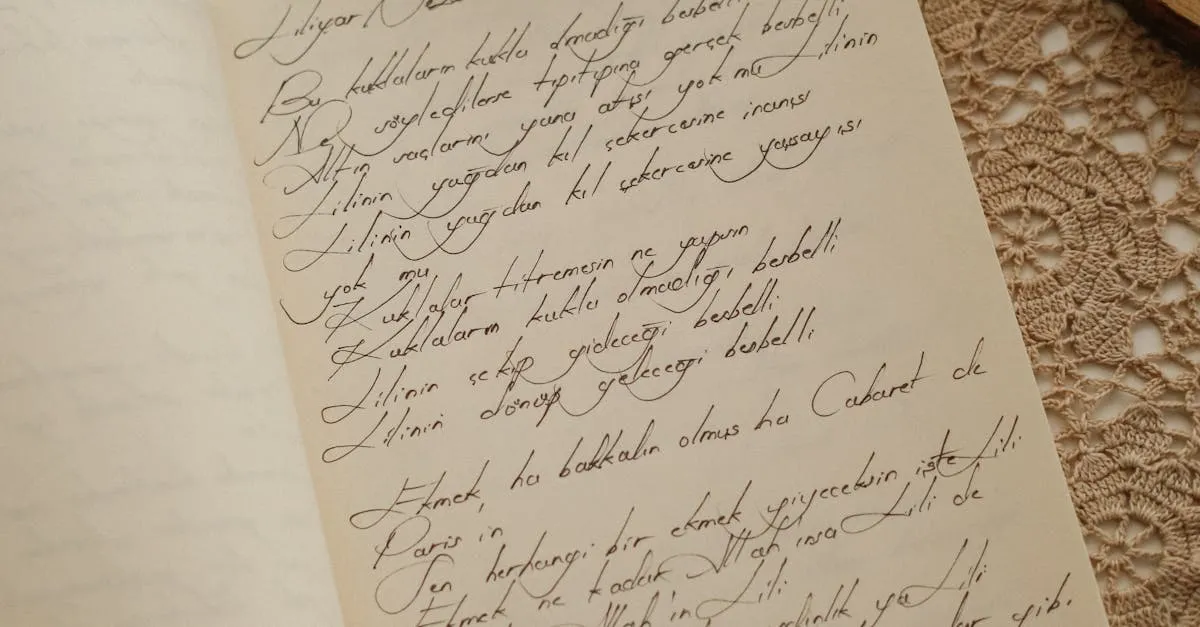 Liliyar
Bu kuklaların kukla olmadığı besbelli
Ne söyledilerse tıpıtıpına gerçek besbelli
Altın saçlarını yana atışı yok mu Lilinin
Lilinin yağdan kıl çekercesine inanışı
Lilinin yağdan kıl çekercesine yaşayışı
yok mu
Kuklalar titremesin ne yapsın
Kuklaların kukla olmadığı besbelli
Lilinin çekip gideceği besbelli
Lilinin dönüp geleceği besbelli
Ekmek, ha bakkalın olmuş ha Cabaret de
Paris in
Sen herhangi bir ekmek yiyeceksin işte Lili
Ekmek ne kadar Allah ınsa Lili de
Allah'ın Lili
ya Lili
gib.